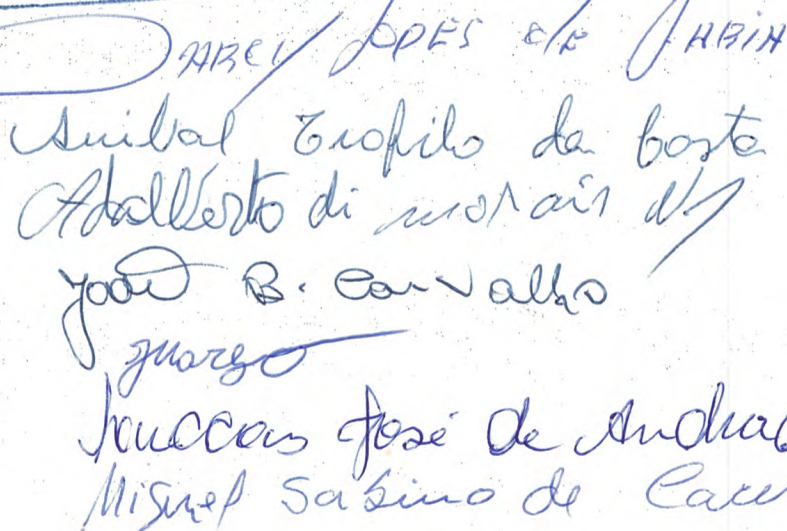 DARCY LOPES de FARIA
Anibal Teofilo da Costa
Adalberto di morais
João B. Carvalho
José de Andra
Miguel Sabino de